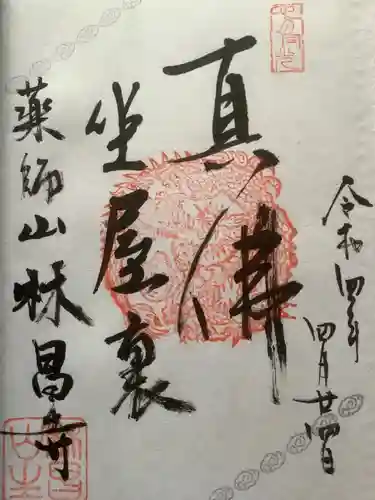 令和四年
四月廿四日
真佛
坐屋裏
薬師山林昌寺